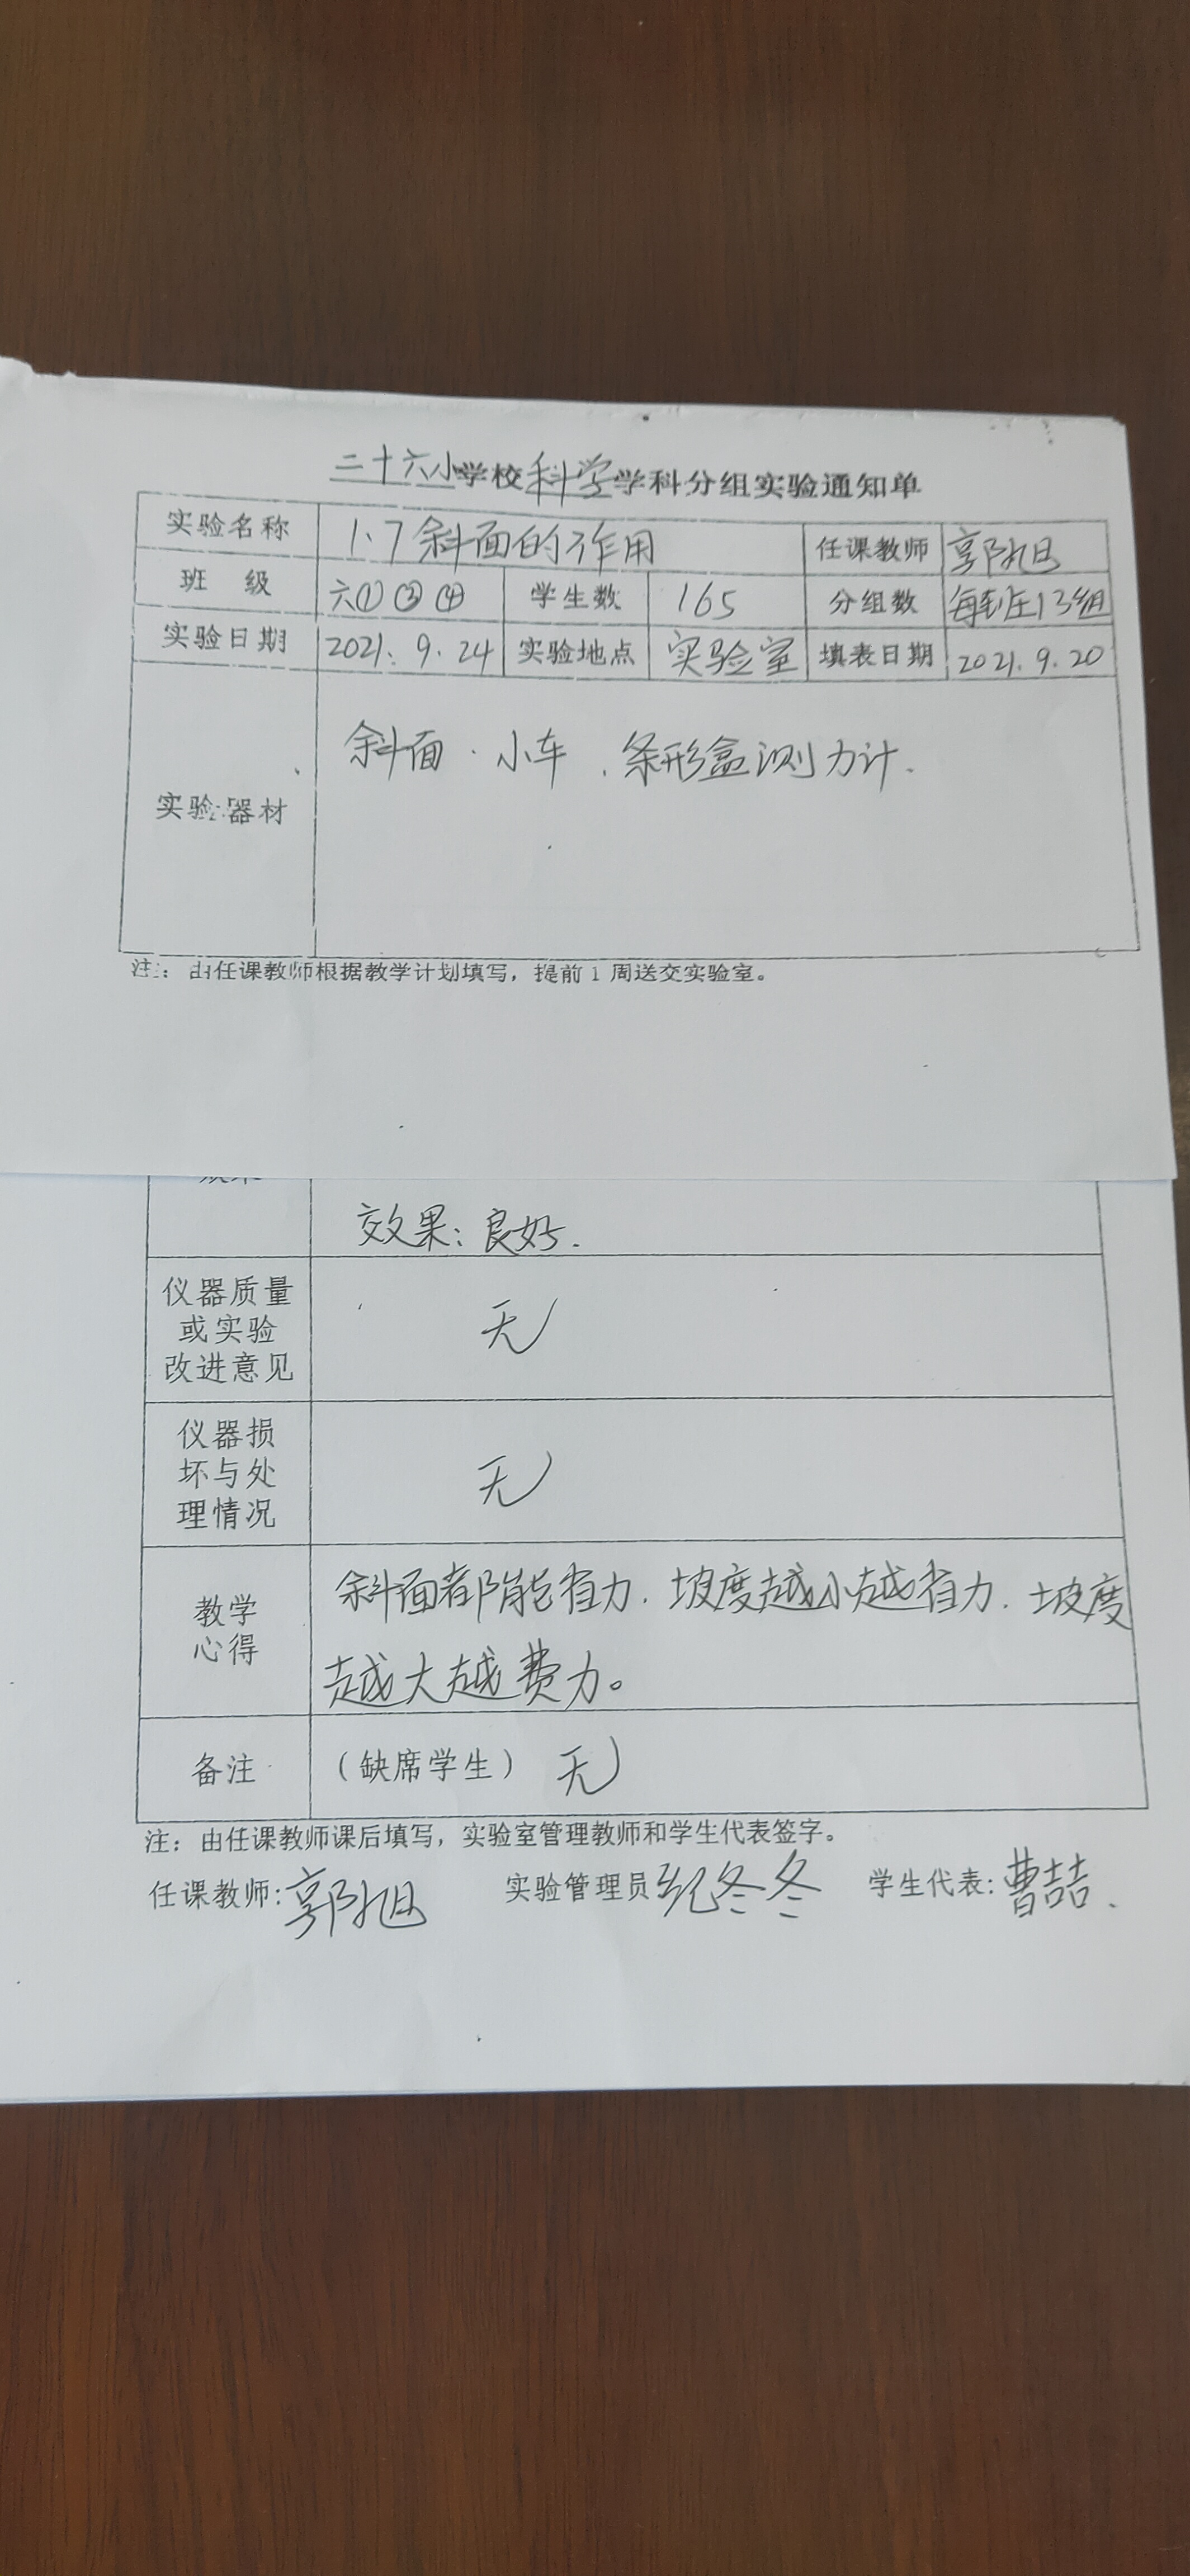 二十六小学校科学学科分组实验通知单
实验名称 1.7斜面的作用 任课教师 郭旭
班 级 六①③④ 学生数 165 分组数 每班13组
实验日期 2021.9.24 实验地点 实验室 填表日期 2021.9.20
实验器材 斜面、小车、条形盒测力计.
注：由任课教师根据教学计划填写，提前1周送交实验室。
效果：良好.
仪器质量
或实验
改进意见
无
仪器损
坏与处
理情况
无
教学
心得
斜面都能省力.坡度越小越省力.坡度
越大越费力。
备注 （缺席学生） 无
注：由任课教师课后填写，实验室管理教师和学生代表签字。
任课教师:郭旭 实验管理员 纪冬冬 学生代表:曹喆.